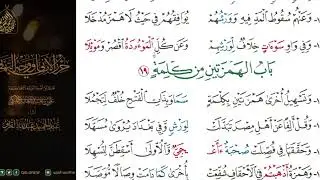 وَعَنْهُمْ سُقُوطُ الْمَدِّ فِيهِ وَوَرْشُهُمْ يُوَافِقُهُمْ فِي حَيْثُ لَا هَمْزَ مُدْخَلَا
وَفِي وَاوِ سَوْءَاتٍ خِلَافٌ لِوَرْشِهِمْ وَعَنْ كُلٍّ الْمَوْءُودَةُ اقْصُرْ وَمَوْئِلَا
بَابُ الْهَمْزَتَيْنِ مِنْ كَلِمَةٍ ١٩
وَتَسْهِيلُ أُخْرَى هَمْزَتَيْنِ بِكِلْمَةٍ سَمَا وَبِذَاتِ الْفَتْحِ خُلْفٌ لِتَجْمُلَا
وَقُلْ أَلِفًا عَنْ أَهْلِ مِصْرَ تَبَدَّلَتْ لِوَرْشٍ وَفِي بَغْدَادَ يُرْوَى مُسَهَّلَا
وَحَقَّقَهَا فِي فُصِّلَتْ صُحْبَةٌ ءَأَعْـ ـجَمِيٌّ وَالْأُولَى أَسْقِطَنَّ لِتُسْهِلَا
وَهَمْزَةُ أَذْهَبْتُمْ فِي الْأَحْقَافِ شُفِّعَتْ بِأُخْرَى كَمَا دَامَتْ وِصَالًا مُوَصَّلَا